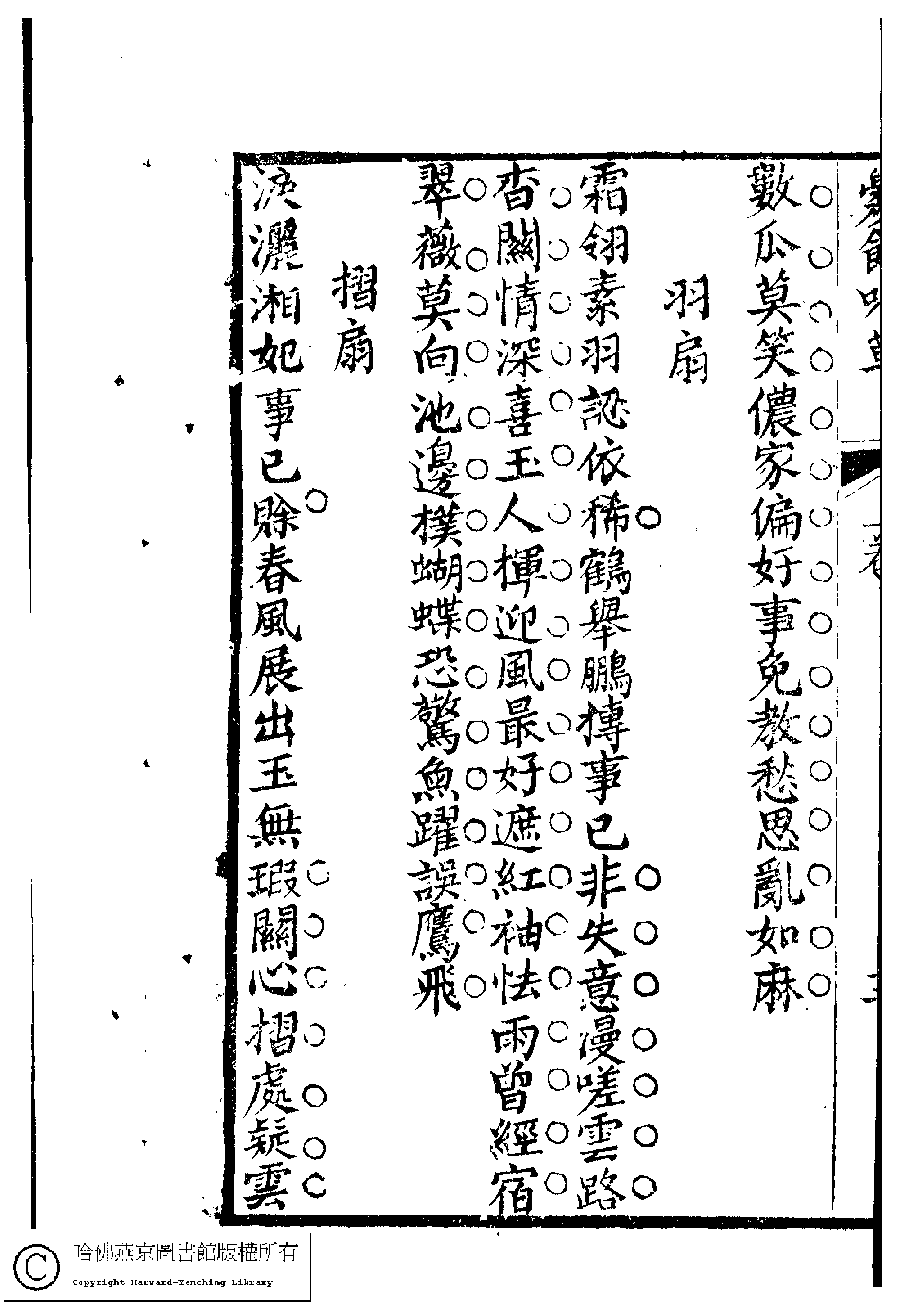 數瓜莫笑儂家偏好事免教愁思亂如麻
羽扇
霜翎素羽認依稀鶴舉鵬摶事已非失意漫嗟雲路
杳關情深喜玉人揮迎風最好遮紅袖怯雨曾經宿
翠薇莫向池邊撲蝴蝶恐驚魚躍誤鷹飛
摺扇
淚灑湘妃事已賒春風展出玉無瑕關心摺處疑雲
哈佛燕京圖書館版權所有
Copyright Harvard-Yenching Library